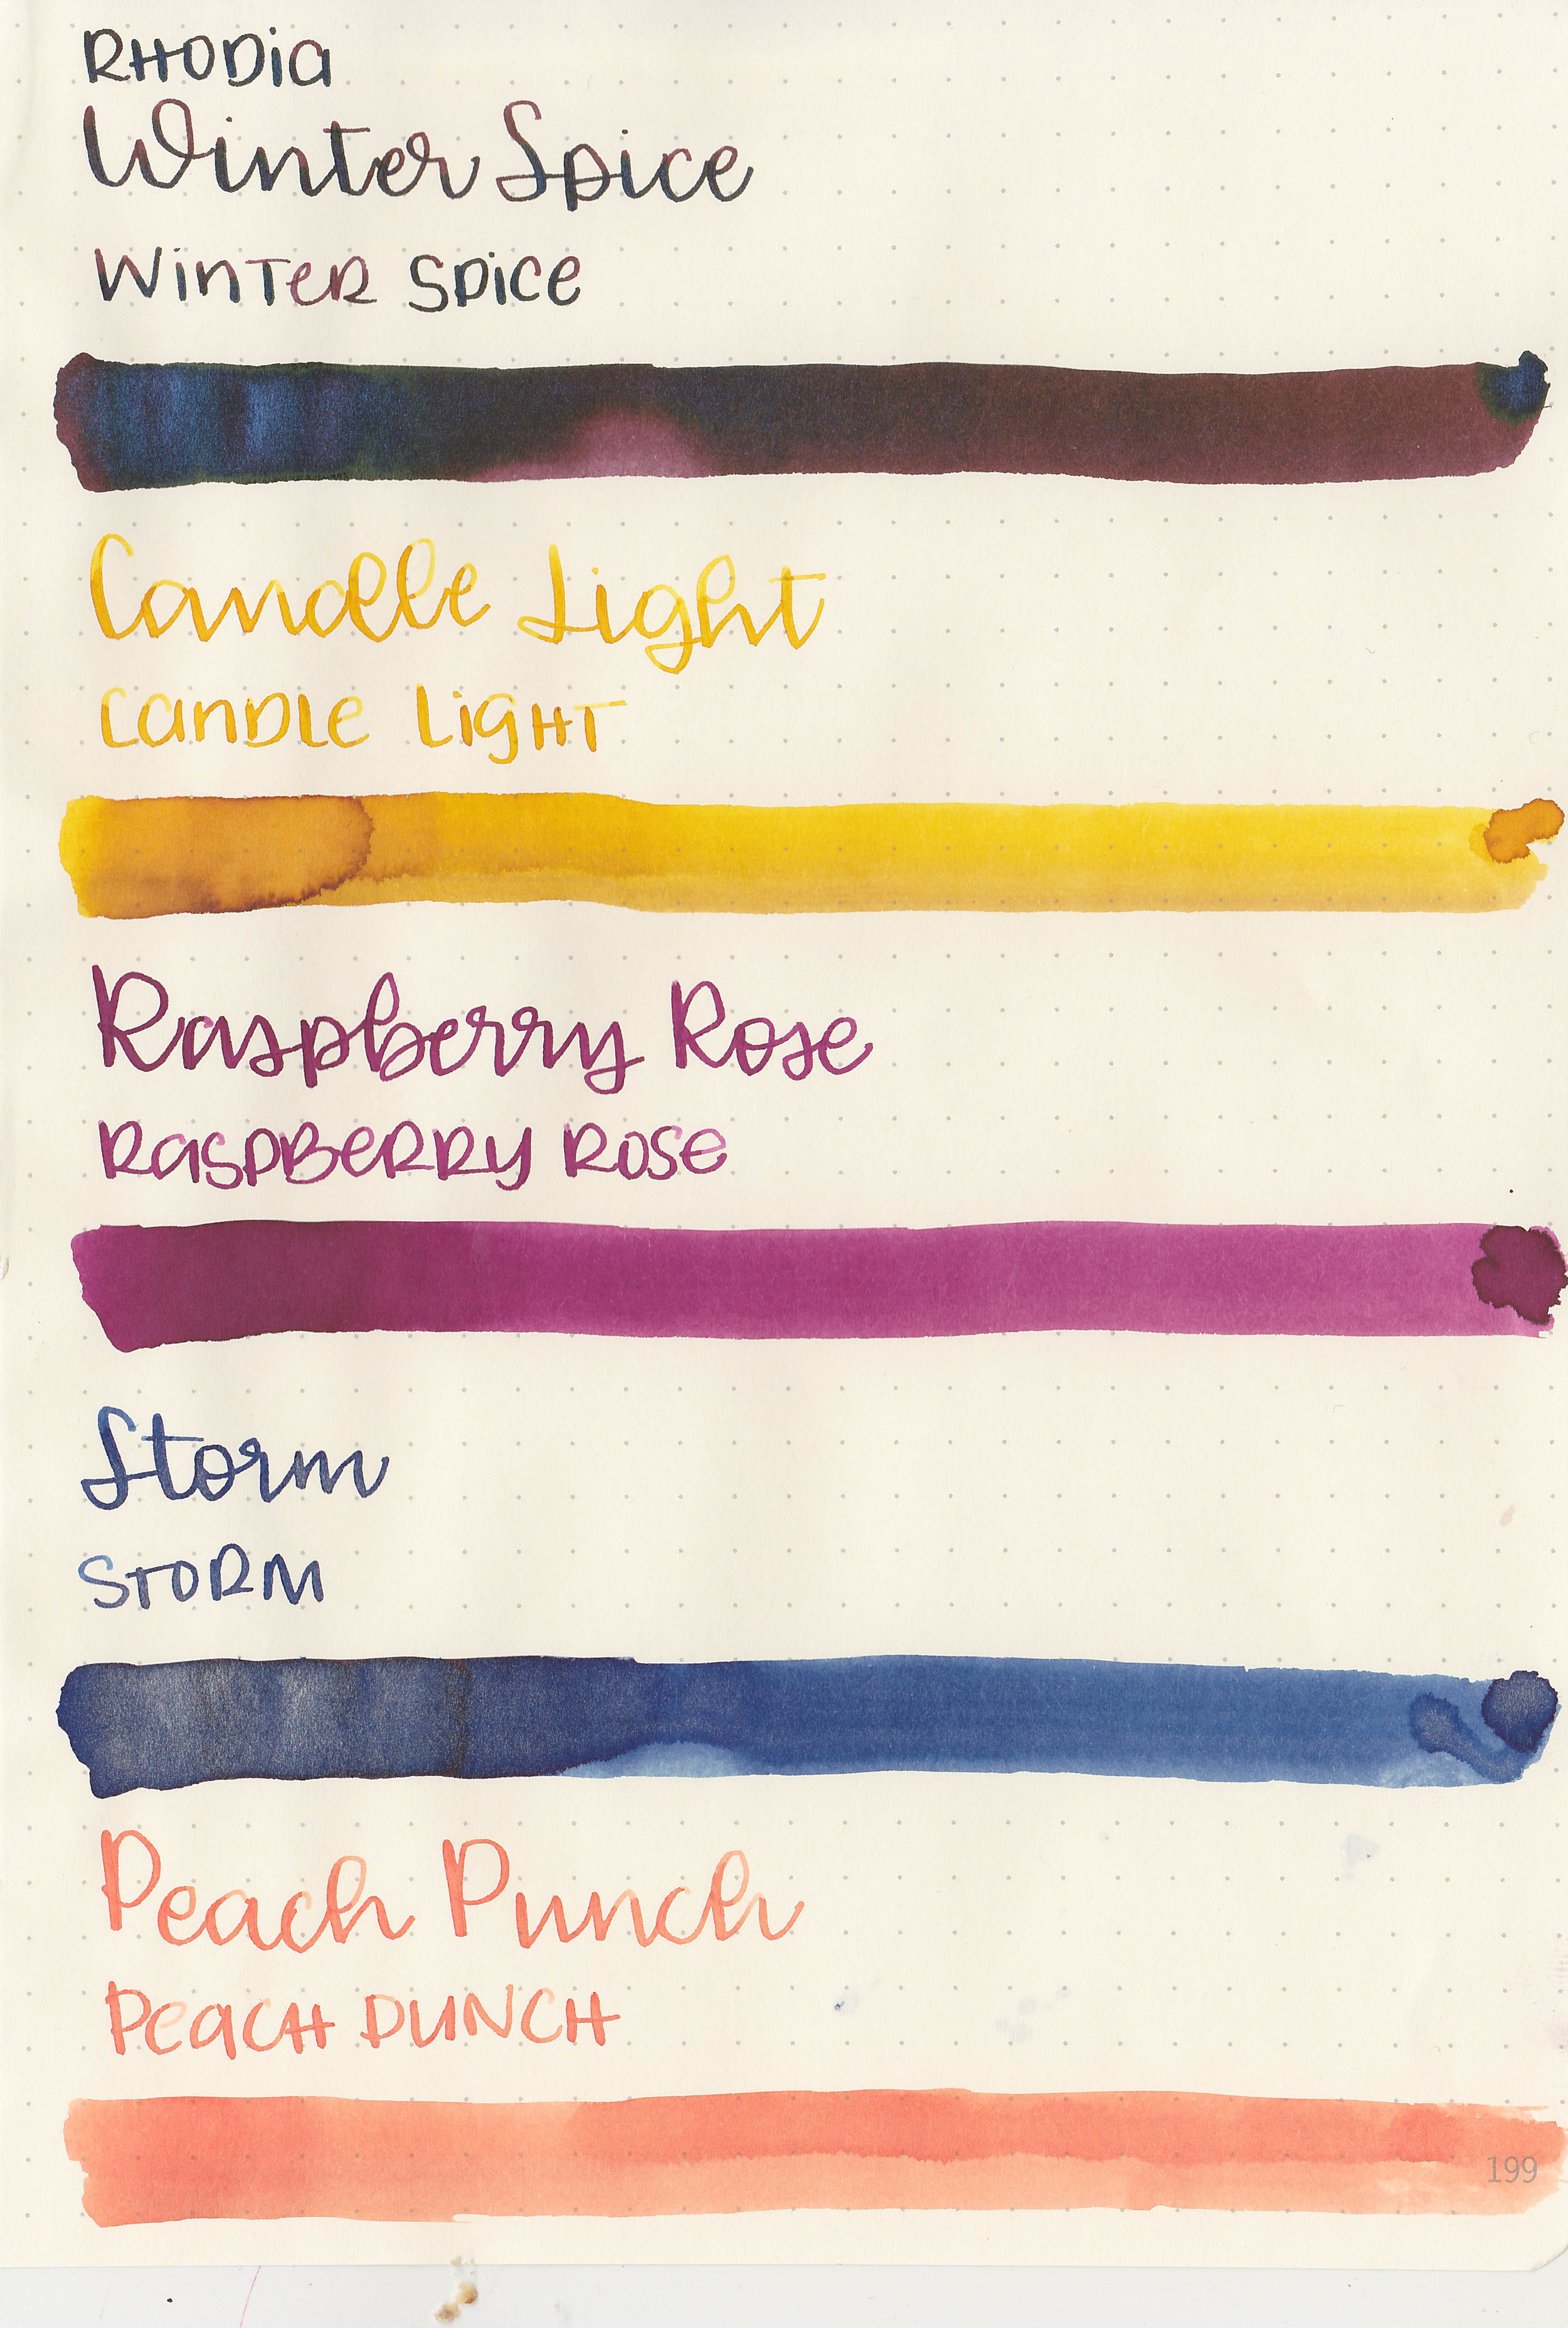 RHODia
Winter Spice
WinTeR Spice
Candle Light
CanDLe LigHT
Raspberry Rose
RaspBeRRy Rose
Storm
STORM
Peach Punch
PeacH PUNCH
199